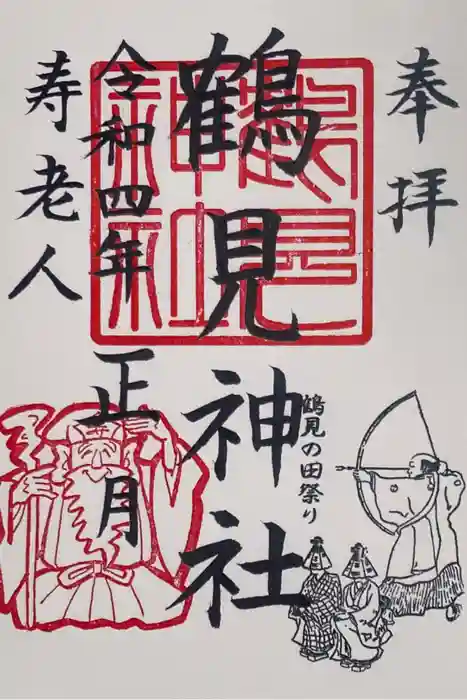 奉拝
鶴見神社
鶴見の田祭り
令和四年正月
寿老人
鶴見神社